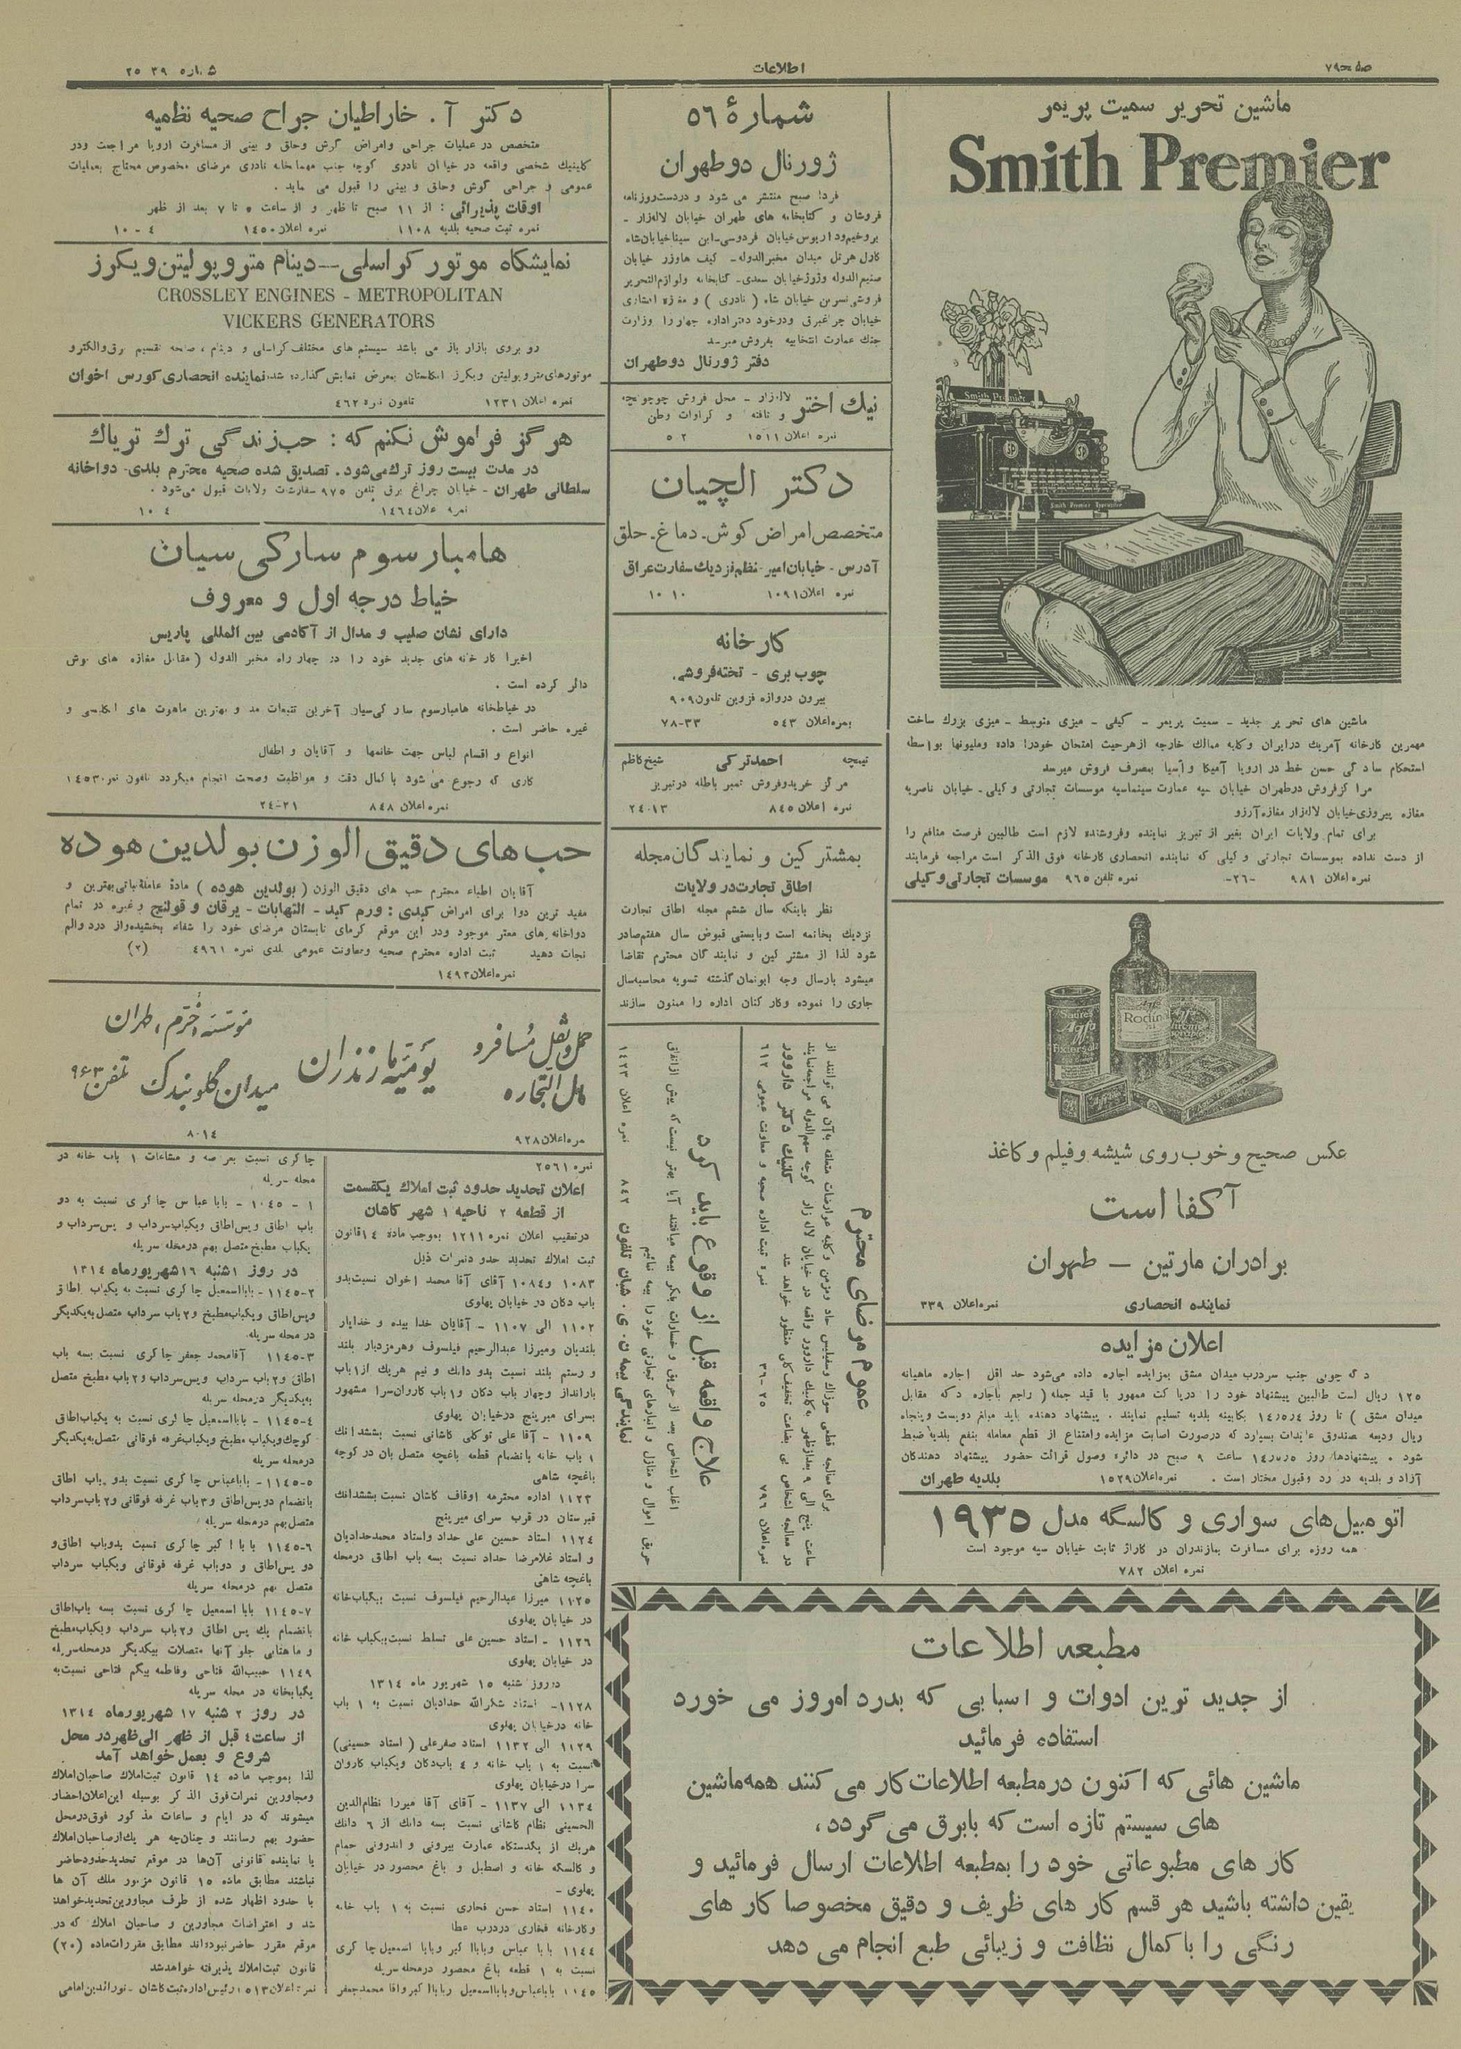 شماره ۲۵۳۹
اطلاعات
صفحه ۷۹
ماشین تحریر سمیت پریمر
Smith Premier
ماشین های تحریر جدید ـ سمیت پریمر ـ کیفی ـ میزی متوسط ـ میزی بزرك ساخت
مهمترین کارخانه آمریك درایران وکلیه ممالك خارجه ازهرحیث امتحان خودرا داده وملیونها بواسطه
استحکام سادگی حسن خط در اروپا آمریکا و آسیا بمصرف فروش میرسد
مرکزفروش درطهران خیابان سپه عمارت سینماسپه موسسات تجارتی وکیلی ـ خیابان ناصریه
مغازه پیروزی خیابان لاله‌زار مغازه آرزو
برای تمام ولایات ایران بغیر از تبریز نماینده وفروشنده لازم است طالبین فرصت منافع را
از دست نداده بموسسات تجارتی وکیلی که نماینده انحصاری کارخانه فوق الذکر است مراجعه فرمایند
نمره اعلان ۹۸۱ -۲۶- نمره تلفن ۹۶۵ موسسات تجارتی وکیلی
Agfa
Rodinal
عکس صحیح وخوب روی شیشه وفیلم وکاغذ
آکفا است
برادران مارتین — طهران
نماینده انحصاری نمره اعلان ۳۳۹
اعلان مزایده
دکه چوبی جنب سردرب میدان مشق بمزایده اجاره داده می‌شود حد اقل اجاره ماهیانه
۱۲۵ ریال است طالبین پیشنهاد خود را درپاکت ممهور با قید جمله ( راجع باجاره دکه مقابل
میدان مشق ) تا روز ۱۴ر۵ر۴ بکابینه بلدیه تسلیم نمایند . پیشنهاد دهنده باید مبلغ دویست وپنجاه
ریال ودیعه صندوق عایدات بسپارد که درصورت اصابت مزایده وامتناع از قطع معامله بنفع بلدیه ضبط
شود . پیشنهادها روز ۱۴ر۵ر۵ ساعت ۹ صبح در دائره وصول قرائت حضور پیشنهاد دهندگان
آزاد و بلدیه در رد وقبول مختار است . نمره اعلان ۱۵۲۹ بلدیه طهران
اتومبیل‌های سواری و کالسگه مدل ۱۹۳۵
همه روزه برای مسافرت بمازندران در کاراژ ثابت خیابان سپه موجود است
نمره اعلان ۷۸۲
شمارهٔ ۵۶
ژورنال دو طهران
فردا صبح منتشر می شود و دردست روزنامه
فروشان و کتابخانه های طهران خیابان لاله‌زار ـ
بروخیم وداریوس خیابان فردوسی-ابن سیناخیابان شاه
میدان مخبرالدوله ـ
خیابان سعدی ـ کتابخانه ولوازم التحریر
دفتر ژورنال دوطهران
نیك اختر لاله‌زار ـ محل فروش
و بافته و کراوات وطن
نمره اعلان ۱۵۱۱ ۲-۵
دکتر الچیان
متخصص امراض کوش ـ دماغ ـ حلق
آدرس ـ خیابان امیر ـ نظم نزدیك سفارت عراق
نمره اعلان ۱۰۹۱ ۱۰ ۱۰
کارخانه
چوب بری - تخته فروشی
بیرون دروازه قزوین تلفون ۹۰۹
نمره اعلان ۵۴۳ ۷۸-۳۳
تیمچه احمدترکی شیخ کاظم
مرکز خریدوفروش تمبر باطله درتبریز
نمره اعلان ۸۴۵ ۲۴-۱۳
بمشترکین و نمایندگان مجله
اطاق تجارت در ولایات
نظر باینکه سال ششم مجله اطاق تجارت
نزدیك بخاتمه است وبایستی قبوض سال هفتم صادر
شود لذا از مشترکین و نمایندگان محترم تقاضا
میشود بارسال وجه ابونمان گذشته تسویه محاسبه سال
جاری را نموده وکارکنان اداره را ممنون سازند
عموم مرضای محترم
برای معالجه قطعی سوزاك وسفلیس حاد ومزمن وکلیه عوارضات متعلقه بآن می توانند از
ساعت پنج الی ۹ بعدازظهر بکلینیك داروور واقعه در خیابان لاله زار کوچه سهم الدوله مراجعه نمایند
در معالجه اشخاص بی بضاعت تخفیف کلی منظور خواهد شد کلنیك دکتر داروور
نمره اعلان ۷۹۶ ۳۶-۲۵ نمره ثبت اداره صحیه و معاونت عمومی ۶۱۲
علاج واقعه قبل از وقوع باید کرد
اغلب اشخاص بعد از حریق و خسارات بفکر بیمه میافتند آیا بهتر نیست که پیش ازاتفاق
حریق اموال و منازل و انبارهای تجارتی خود را بیمه نمائیم
نمایندگی بیمه ن . ی . شبان تلفون ۸۴۲ نمره اعلان ۱۴۲۳
مطبعه اطلاعات
از جدید ترین ادوات و اسبابی که بدرد امروز می خورد
استفاده فرمائید
ماشین هائی که اکنون در مطبعه اطلاعات کار می کنند همه ماشین
های سیستم تازه است که بابرق می گردد،
کار های مطبوعاتی خود را بمطبعه اطلاعات ارسال فرمائید و
یقین داشته باشید هر قسم کار های ظریف و دقیق مخصوصا کار های
رنگی را با کمال نظافت و زیبائی طبع انجام می دهد
دکتر آ . خاراطیان جراح صحیه نظمیه
متخصص در عملیات جراحی وامراض گوش وحلق و بینی از مسافرت اروپا مراجعت ودر
کلینیك شخصی واقعه در خیابان نادری کوچه جنب مهمانخانه نادری مرضای مخصوص محتاج بعملیات
عمومی و جراحی گوش وحلق و بینی را قبول می نماید .
اوقات پذیرائی : از ۱۱ صبح تا ظهر و از ساعت ۵ تا ۷ بعد از ظهر
نمره ثبت صحیه بلدیه ۱۱۰۸ نمره اعلان ۱۴۵۰ ۴ - ۱۰
نمایشگاه موتور کراسلی—دینام متروپولیتن ویکرز
CROSSLEY ENGINES - METROPOLITAN
VICKERS GENERATORS
رو بروی بازار باز می باشد سیستم های مختلف کراسلی و دینام ، صفحه تقسیم برق والکترو
موتورهای متروپولیتن ویکرز انگلستان بمعرض نمایش گذارده شده نماینده انحصاری کورس اخوان
نمره اعلان ۱۲۳۱ تلفون نمره ۴۶۲
هرگز فراموش نکنم که : حب زندگی ترك تریاك
در مدت بیست روز ترك می‌شود. تصدیق شده صحیه محترم بلدی- دواخانه
سلطانی طهران - خیابان چراغ برق تلفن ۹۷۵ سفارشات ولایات قبول می‌شود .
نمره اعلان ۱۴۶۴ ۴ ۱۰
هامبارسوم سارکی سیان
خیاط درجه اول و معروف
دارای نشان صلیب و مدال از آکادمی بین المللی پاریس
اخیرا کارخانه های جدید خود را در چهار راه مخبر الدوله ( مقابل مغازه های بوش
دائر کرده است .
در خیاطخانه هامبارسوم سارکی‌سیان آخرین تتبعات مد و بهترین ماهوت های انگلیسی و
غیره حاضر است .
انواع و اقسام لباس جهت خانمها و آقایان و اطفال
کاری که رجوع می‌شود با کمال دقت و مواظبت وصحت انجام میگردد تلفون نمره ۱۴۵۳
نمره اعلان ۸۴۸ ۲۴-۲۱
حب های دقیق الوزن بولدین هوده
آقایان اطباء محترم حب های دقیق الوزن ( بولدین هوده ) مادهٔ عاملهٔ نباتی بهترین و
مفید ترین دوا برای امراض کبدی : ورم کبد - التهابات - یرقان و قولنج وغیره در تمام
دواخانه های معتبر موجود ودر این موقع گرمای تابستان مرضای خود را شفاء بخشیده و از درد والم
نجات دهید ثبت اداره محترم صحیه ومعاونت عمومی بلدی نمره ۴۹۶۱ (۲)
نمره اعلان ۱۴۹۲
حمل و نقل مسافر و
مال التجاره
یومیه مازندران
موسسه اخترم ، طهران
میدان گلوبندك تلفن ۹۶۳
نمره اعلان ۹۲۸ ۸-۱۴
نمره ۲۵۶۱
اعلان تحدید حدود ثبت املاك یکقسمت
از قطعه ۲ ناحیه ۱ شهر کاشان
درتعقیب اعلان نمره ۱۲۱۱ بموجب ماده ۱۴ قانون
ثبت املاك تحدید حدود نمرات ذیل
۱۰۸۳ و ۱۰۸۴ آقای آقا محمد اخوان نسبت بدو
باب دکان در خیابان پهلوی
۱۱۰۲ الی ۱۱۰۷ - آقایان خدا بیده و خدایار
بلندیان ومیرزا عبدالرحیم فیلسوف وهرمزدیار بلند
و رستم بلند نسبت بدو دانك و نیم هریك از ۱ باب
بارانداز وچهار باب دکان و ۱ باب کاروان‌سرا مشهور
بسرای میرپنج درخیابان پهلوی
۱۱۰۹ - آقا علی توکلی کاشانی نسبت بششدانك
۱ باب خانه بانضمام قطعه باغچه متصل بان در کوچه
باغچه شاهی
۱۱۲۳ اداره محترمه اوقاف کاشان نسبت بششدانك
قبرستان در قرب سرای میرپنج
۱۱۲۴ استاد حسین علی حداد واستاد محمدحدادیان
و استاد غلامرضا حداد نسبت بسه باب اطاق درمحله
باغچه شاهی
۱۱۲۵ میرزا عبدالرحیم فیلسوف نسبت بیکباب خانه
در خیابان پهلوی
۱۱۲۶ - استاد حسین علی تسلط نسبت بیکباب خانه
در خیابان پهلوی
درروز شنبه ۱۵ شهریور ماه ۱۳۱۴
۱۱۲۸- استاد شکرالله حدادیان نسبت به ۱ باب
خانه درخیابان پهلوی
۱۱۲۹ الی ۱۱۳۲ استاد صفرعلی ( استاد حسینی )
نسبت به ۱ باب خانه و ۴ باب دکان ویکباب کاروان
سرا درخیابان پهلوی
۱۱۳۴ الی ۱۱۳۷ - آقای آقا میرزا نظام‌الدین
الحسینی نظام کاشانی نسبت بسه دانك از ۶ دانك
هریك از یکدستگاه عمارت بیرونی و اندرونی حمام
و کالسکه خانه و اصطبل و باغ محصور در خیابان
پهلوی ـ
۱۱۴۰ استاد حسن فخاری نسبت به ۱ باب خانه
وکارخانه فخاری دردرب عطا
۱۱۴۴ بابا عباس وبابا اکبر وبابا اسمعیل چاکری
نسبت به ۱ قطعه باغ محصور درمحله سرپله
۱۱۴۵ باباعباس وبابااسمعیل وبابا اکبر واقا محمدجعفر
چاکری نسبت بعرصه و مشاعات ۱ باب خانه در
محله سرپله
۱ - ۱۱۴۵ - بابا عباس چاکری نسبت به دو
باب اطاق وپس اطاق ویکباب سرداب و پس سرداب و
یکباب مطبخ متصل بهم درمحله سرپله
در روز ۱شنبه ۱۶شهریورماه ۱۳۱۴
۲-۱۱۴۵- بابااسمعیل چاکری نسبت به یکباب اطاق
وپس اطاق ویکباب مطبخ و ۲ باب سرداب متصل به یکدیگر
در محله سرپله
۳-۱۱۴۵ آقامحمد جعفر چاکری نسبت بسه باب
اطاق و ۲ باب سرداب وپس سرداب و ۲ باب مطبخ متصل
به یکدیگر درمحله سرپله
۴-۱۱۴۵ - بابااسمعیل چاکری نسبت به یکباب اطاق
کوچك ویکباب مطبخ ویکباب غرفه فوقانی متصل به یکدیگر
درمحله سرپله
۵-۱۱۴۵ - باباعباس چاکری نسبت بدو باب اطاق
بانضمام دوپس اطاق و ۳ باب غرفه فوقانی و ۲ باب سرداب
متصل بهم درمحله سرپله
۶-۱۱۴۵ بابا اکبر چاکری نسبت بدوباب اطاق و
دو پس اطاق و دوباب غرفه فوقانی ویکباب سرداب
متصل بهم درمحله سرپله
۷-۱۱۴۵ بابا اسمعیل چاکری نسبت بسه باب اطاق
بانضمام یك پس اطاق و ۲ باب سرداب ویکباب مطبخ
و ماهتابی جلو آنها متصلات بیکدیگر درمحله سرپله
۱۱۴۹ حبیب‌الله فتاحی وفاطمه بیگم فتاحی نسبت به
یکبابخانه در محله سرپله
در روز ۲ شنبه ۱۷ شهریورماه ۱۳۱۴
از ساعت ۴ قبل از ظهر الی ظهردر محل
شروع و بعمل خواهد آمد
لذا بموجب ماده ۱۴ قانون ثبت املاك صاحبان املاك
ومجاورین نمرات فوق الذکر بوسیله این اعلان احضار
میشوند که در ایام و ساعات مذکور فوق درمحل
حضور بهم رسانند و چنانچه هر یك ازصاحبان املاك
یا نماینده قانونی آن‌ها در موقع تحدیدحدودحاضر
نباشند مطابق ماده ۱۵ قانون مزبور ملك آن ها
با حدود اظهار شده از طرف مجاورین تحدیدخواهد
شد و اعتراضات مجاورین و صاحبان املاك که در
موقع مقرر حاضر نبوده‌اند مطابق مقررات ماده (۲۰)
قانون ثبت املاك پذیرفته خواهدشد
نمره اعلان ۱۵۱۳ رئیس اداره ثبت کاشان ـ نورالدین امامی